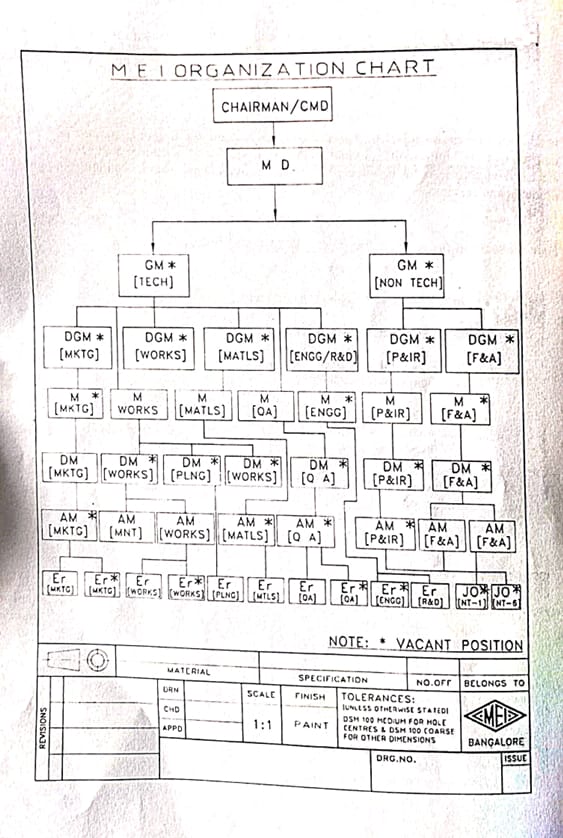 M E I ORGANIZATION CHART
CHAIRMAN/CMD
M D.
GM *
[TECH]
GM *
[NON TECH]
DGM *
[MKTG]
DGM *
[WORKS]
DGM *
[MATLS]
DGM *
[ENGG/R&D]
DGM *
[P&IR]
DGM *
[F&A]
M *
[MKTG]
M
WORKS
M
[MATLS]
M
[QA]
M *
[ENGG]
M
[P&IR]
M *
[F&A]
DM
[MKTG]
DM *
[WORKS]
DM *
[PLNG]
DM *
[WORKS]
DM *
[Q A]
DM *
[P&IR]
DM *
[F&A]
AM *
[MKTG]
AM
[MNT]
AM
[WORKS]
AM *
[MATLS]
AM *
[Q A]
AM *
[P&IR]
AM
[F&A]
AM
[F&A]
Er
[MKTG]
Er *
[MKTG]
Er
[WORKS]
Er *
[WORKS]
Er
[PLNG]
Er
[MTLS]
Er
[QA]
Er *
[QA]
Er *
[ENGG]
Er
[R&D]
JO *
[NT-1]
JO *
NOTE: * VACANT POSITION
MATERIAL
SPECIFICATION
NO.OFF
BELONGS TO
REVISIONS
DRN
CHD
APPD
SCALE
1:1
FINISH
PAINT
TOLERANCES:
(UNLESS OTHERWISE STATED)
DSM 100 MEDIUM FOR HOLE
CENTRES & DSM 100 COARSE
FOR OTHER DIMENSIONS
MEI
BANGALORE
DRG.NO.
ISSUE